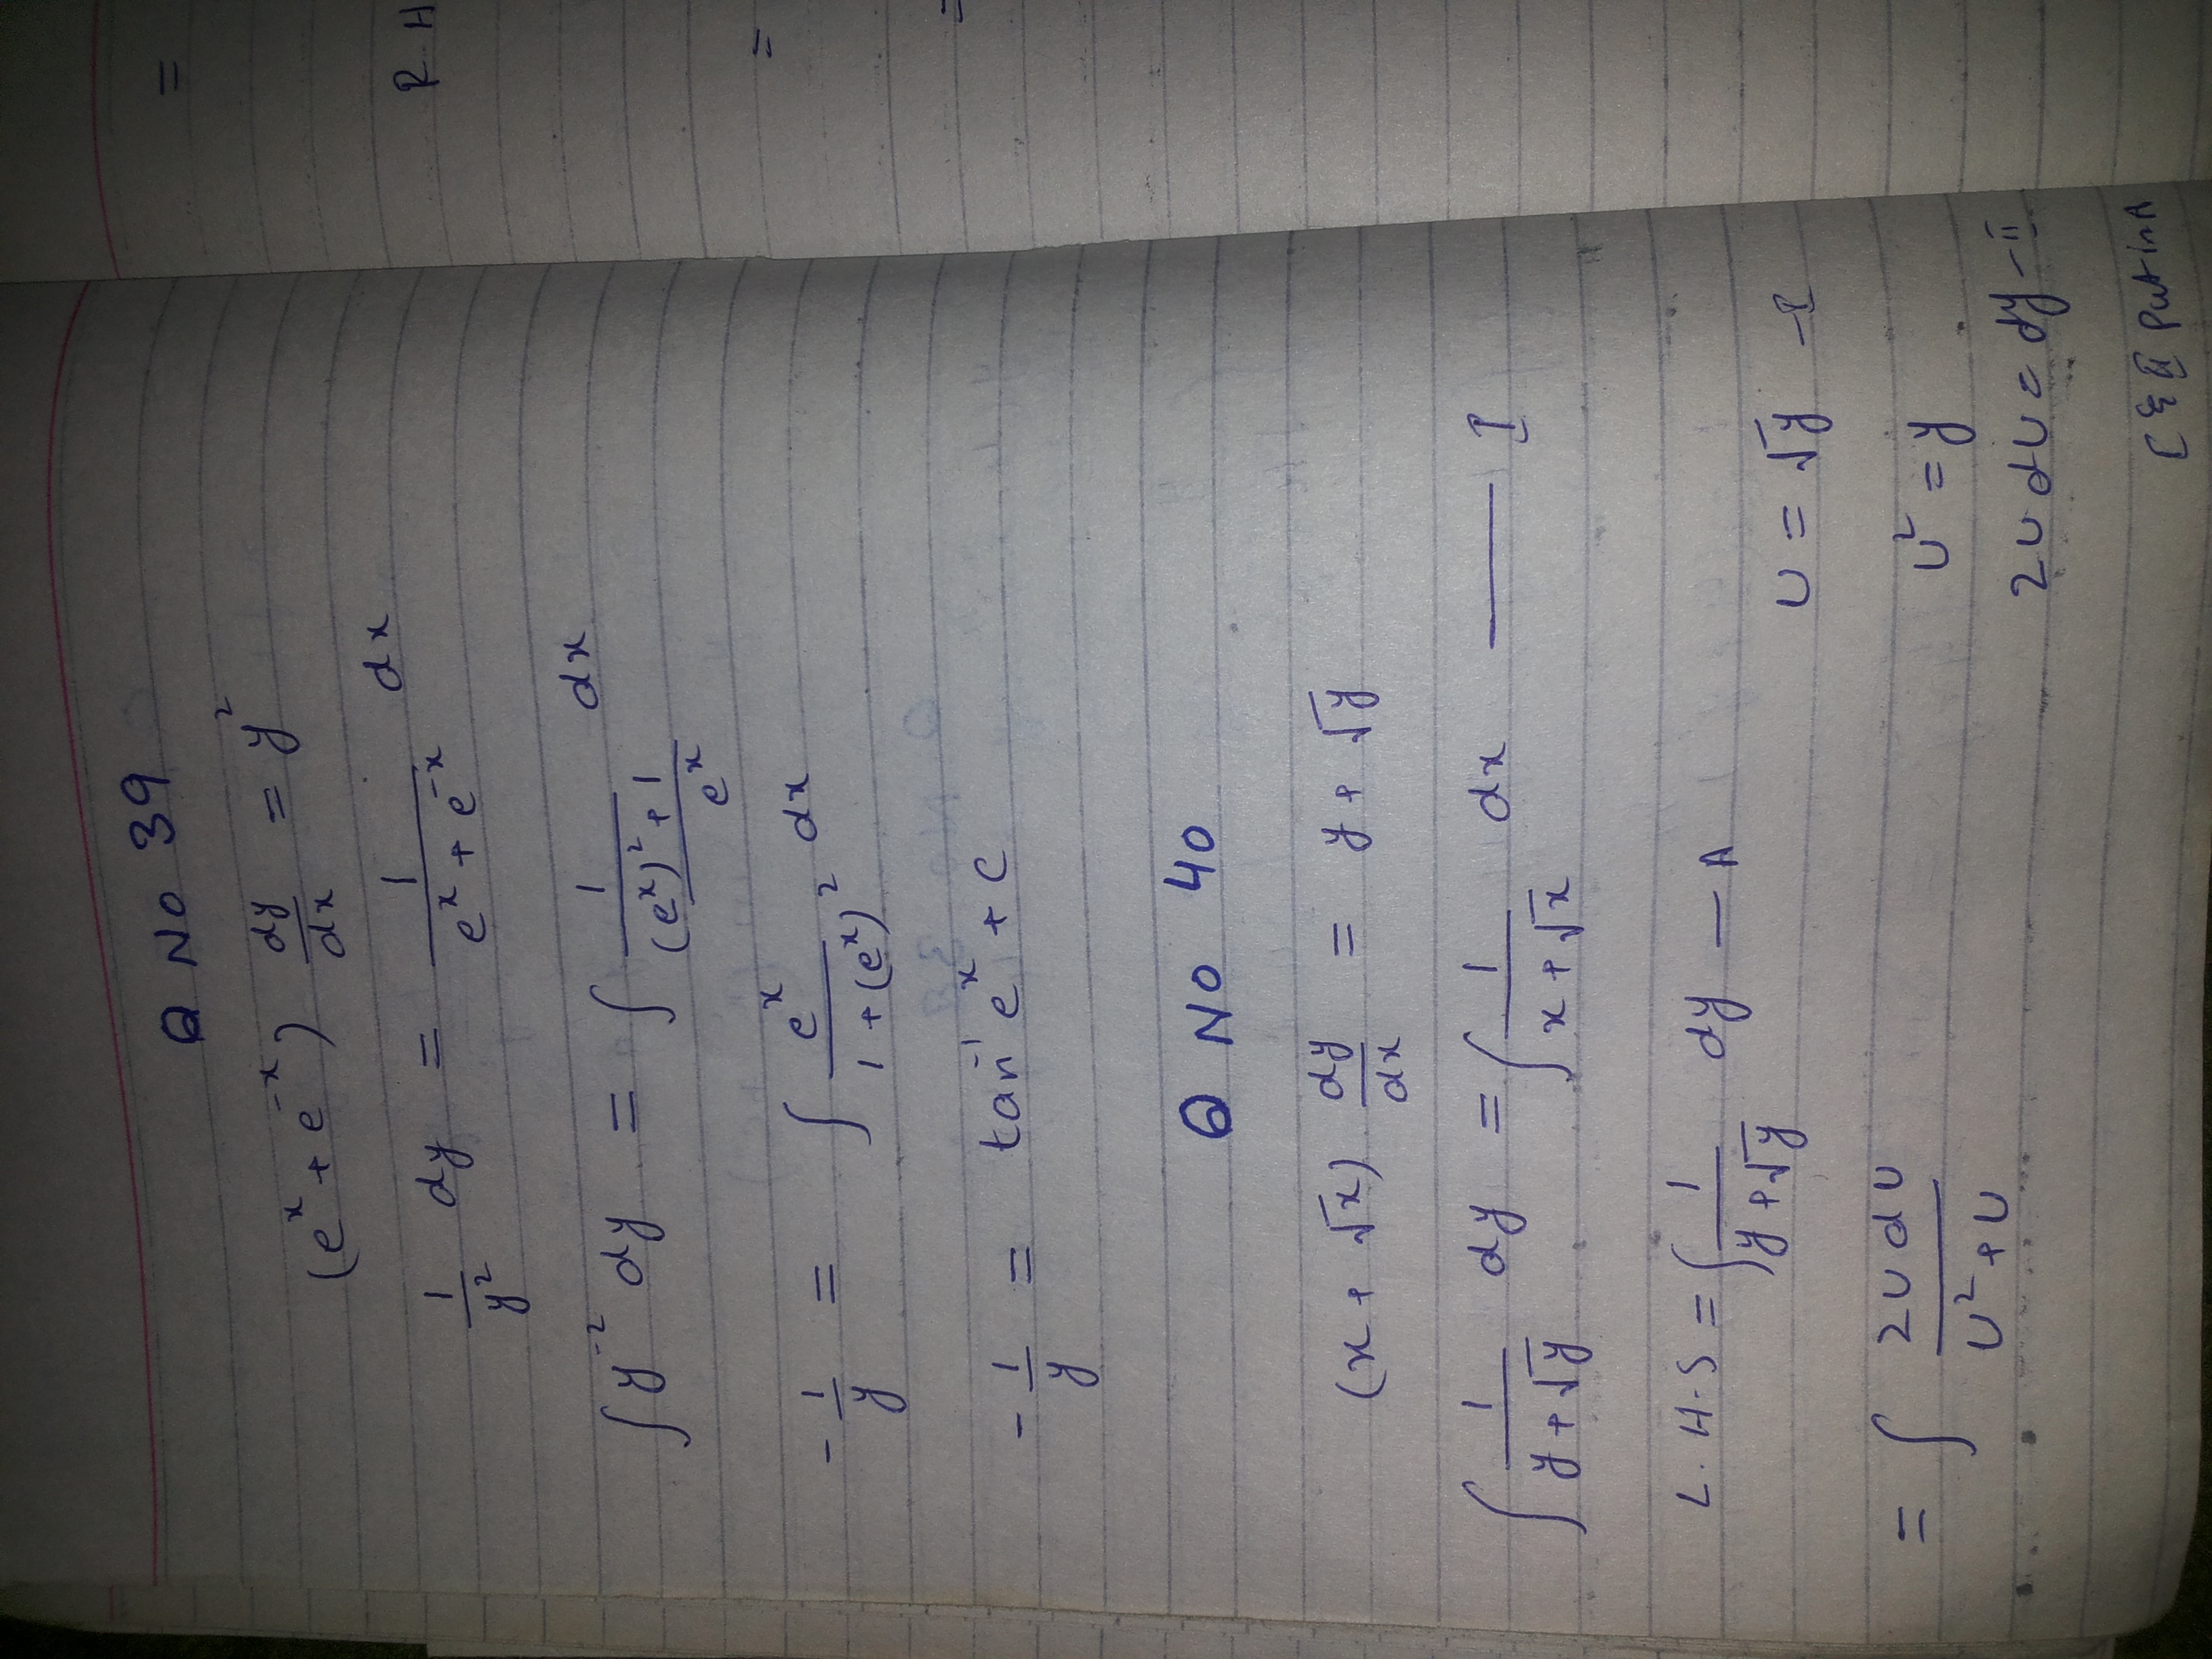 Q No 39
(e^x + e^-x) dy/dx = y^2
1/y^2 dy = 1/(e^x + e^-x) dx
∫ y^-2 dy = ∫ 1/(((e^x)^2 + 1)/e^x) dx
-1/y = ∫ e^x/(1 + (e^x)^2) dx
-1/y = tan^-1 e^x + c
Q No 40
(x + √x) dy/dx = y + √y
∫ 1/(y + √y) dy = ∫ 1/(x + √x) dx — I
L.H.S = ∫ 1/(y + √y) dy — A
U = √y — I
= ∫ 2U dU/(U^2 + U)
U^2 = y
2U dU = dy — II
I & II Put in A
=
R.H
=
=